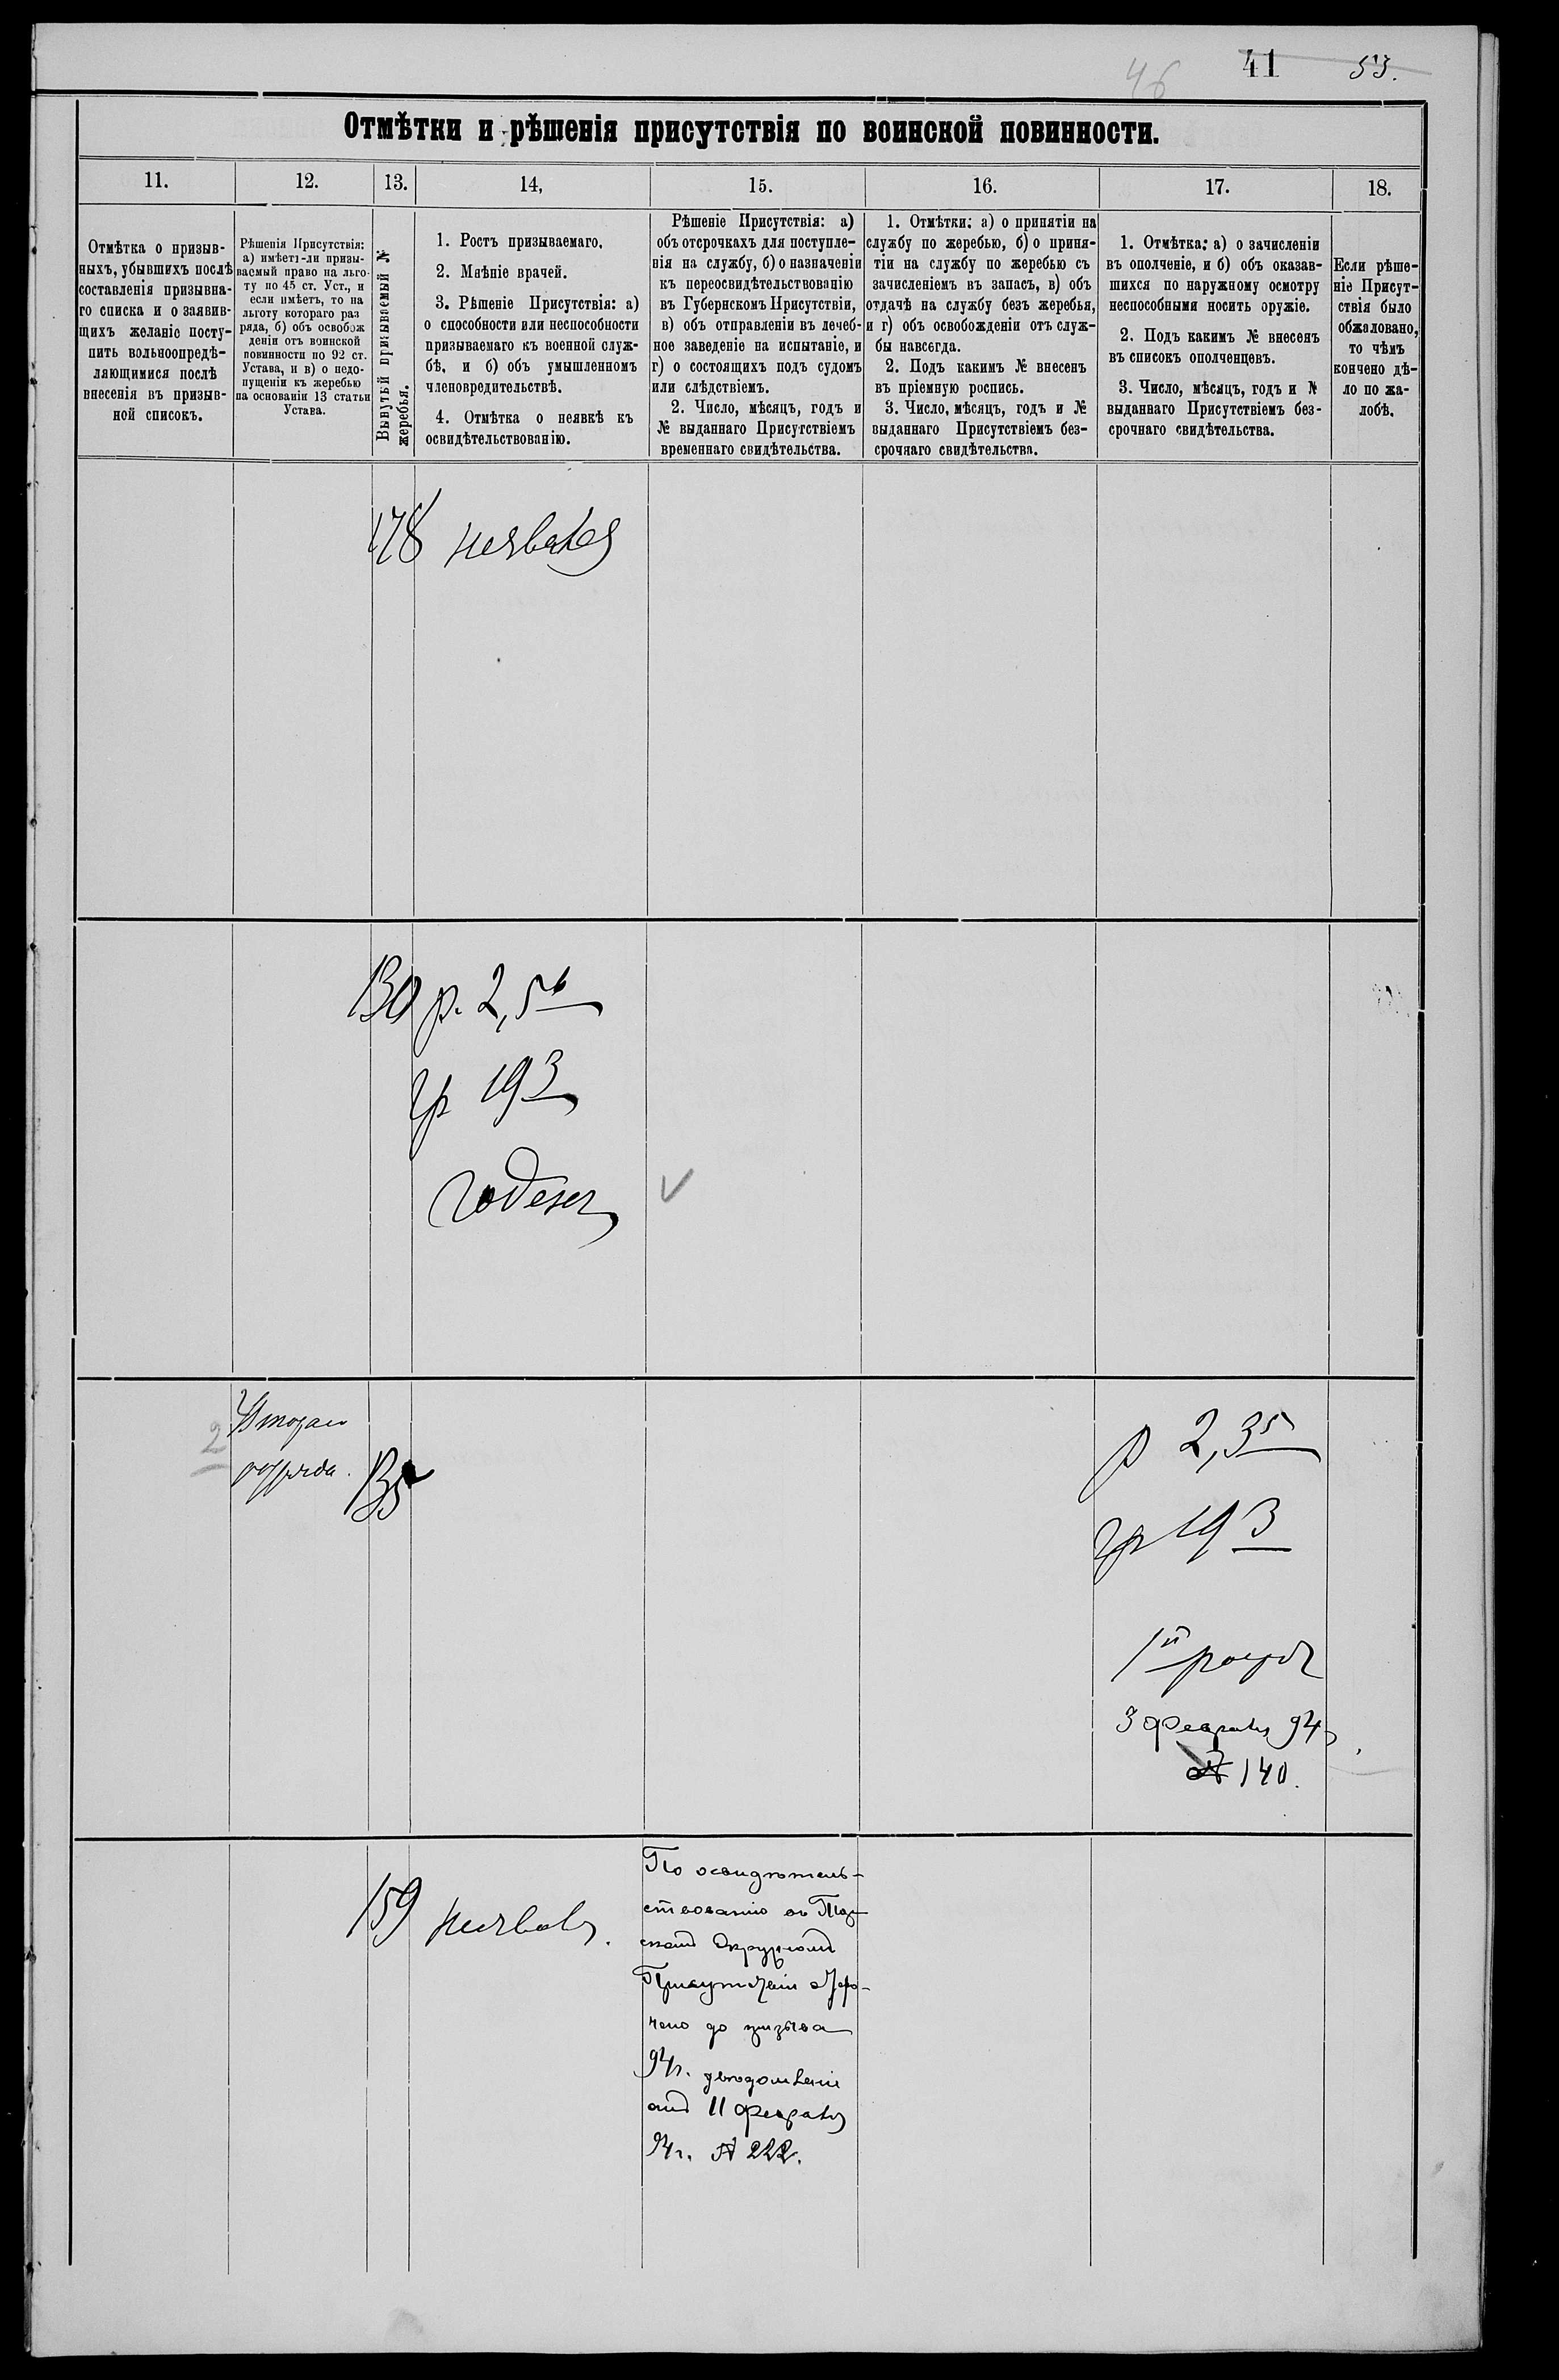 46 41 53.
Отмѣтки и рѣшенія присутствія по воинской повинности.
11. 12. 13. 14, 15. 16. 17. 18.
Отмѣтка о призыв-
ныхъ, убывшихъ послѣ
составленія призывна-
го списка и о заявив-
щихъ желаніе посту-
пить вольноопредѣ-
ляющимися послѣ
внесенія въ призыв-
ной списокъ.
Рѣшенія Присутствія:
а) имѣетъ-ли призы-
ваемый право на льго-
ту по 45 ст. Уст., и
если имѣетъ, то на
льготу котораго раз
ряда, б) объ освобож
деніи отъ воинской
повинности по 92 ст.
Устава, и в) о недо-
пущеніи къ жеребью
на основаніи 13 статьи
Устава.
Вынутый призываемый №
жеребья.
1. Ростъ призываемаго.
2. Мнѣніе врачей.
3. Рѣшеніе Присутствія: а)
о способности или неспособности
призываемаго къ военной служ-
бѣ, и б) объ умышленномъ
членовредительствѣ.
4. Отмѣтка о неявкѣ къ
освидѣтельствованію.
Рѣшеніе Присутствія: а)
объ отсрочкахъ для поступле-
нія на службу, б) о назначеніи
къ переосвидѣтельствованію
въ Губернскомъ Присутствіи,
в) объ отправленіи въ лечеб-
ное заведеніе на испытаніе, и
г) о состоящихъ подъ судомъ
или слѣдствіемъ.
2. Число, мѣсяцъ, годъ и
№ выданнаго Присутствіемъ
временнаго свидѣтельства.
1. Отмѣтки: а) о принятіи на
службу по жеребью, б) о приня-
тіи на службу по жеребью съ
зачисленіемъ въ запасъ, в) объ
отдачѣ на службу безъ жеребья,
и г) объ освобожденіи отъ служ-
бы навсегда.
2. Подъ какимъ № внесенъ
въ пріемную роспись.
3. Число, мѣсяцъ, годъ и №
выданнаго Присутствіемъ без-
срочнаго свидѣтельства.
1. Отмѣтка: а) о зачисленіи
въ ополченіе, и б) объ оказав-
шихся по наружному осмотру
неспособными носить оружіе.
2. Подъ какимъ № внесенъ
въ списокъ ополченцевъ.
3. Число, мѣсяцъ, годъ и №
выданнаго Присутствіемъ без-
срочнаго свидѣтельства.
Если рѣше-
ніе Присут-
ствія было
обжаловано,
то чѣмъ
кончено дѣ-
ло по жа-
лобѣ.
178 неявился
130 р. 2,5 6
гр 19 3
Годенъ
2
Втораго
разряда.
135
р 2,3 5
гр 19 3
1й разрядъ
3 февраля 94
№ 140.
159 неявился.
По освидѣтель-
ствованію въ
скомъ Окружномъ
Присутствіи отсро-
чено до призыва
94 г.
11 февраля
94 г. № 222.